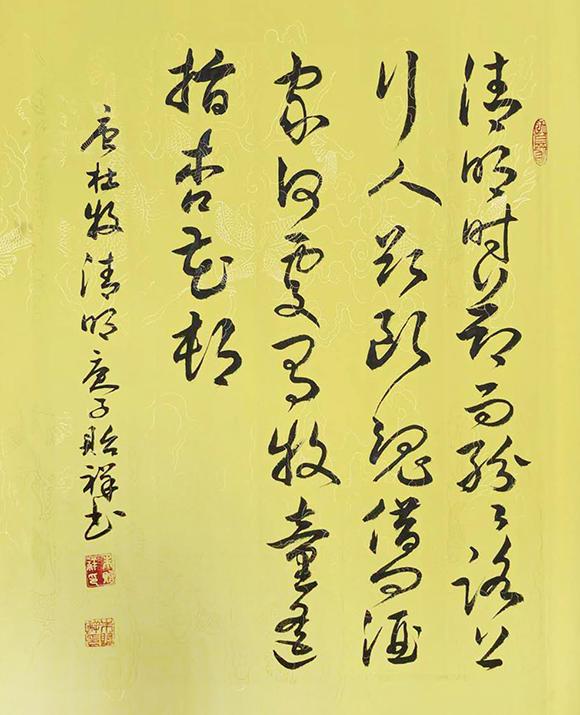 清明时节雨纷々路上
行人欲断魂借问酒
家何处有牧童遥
指杏花村
唐杜牧清明庚子贻祥书